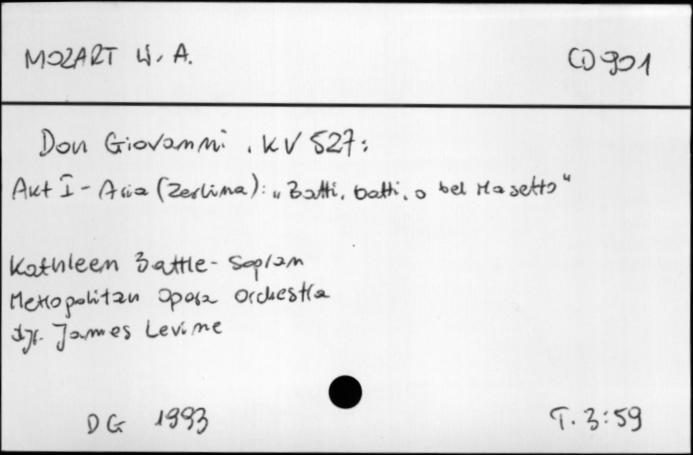 MOZART W. A. CD 901
Don Giovanni, KV 527:
Akt I - Aria (Zerlina): „Batti, batti, o bel Masetto"
Kathleen Battle - Sopran
Metropolitan Opera Orchestra
dyr. James Levine
DG 1993 T. 3:59